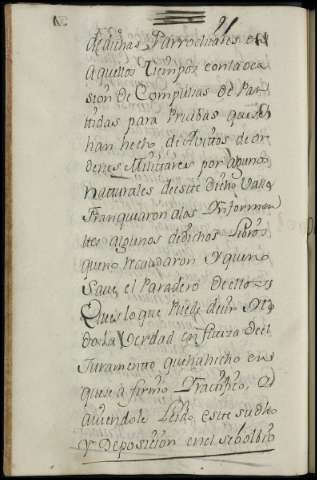 dedichas Parrochiales en
aquellos tiempos conla oca
sion de Compulsas de Par
ttidas para Pruebas quese
han hecho de Avitos de or
denes Militares por algunos
naturales deeste Dicho Valle
franquiaron alos Ynforman
tes algunos dedichos Libros
queno recaudaron Y queno
save el Paradero deellos
Ques lo que Puede decir Y es
Verdad en fuerza del
Juramento quehahecho en
quese afirmo Ratifico,
aviendole Leido este su dho
Y Deposicion en el sebolbio